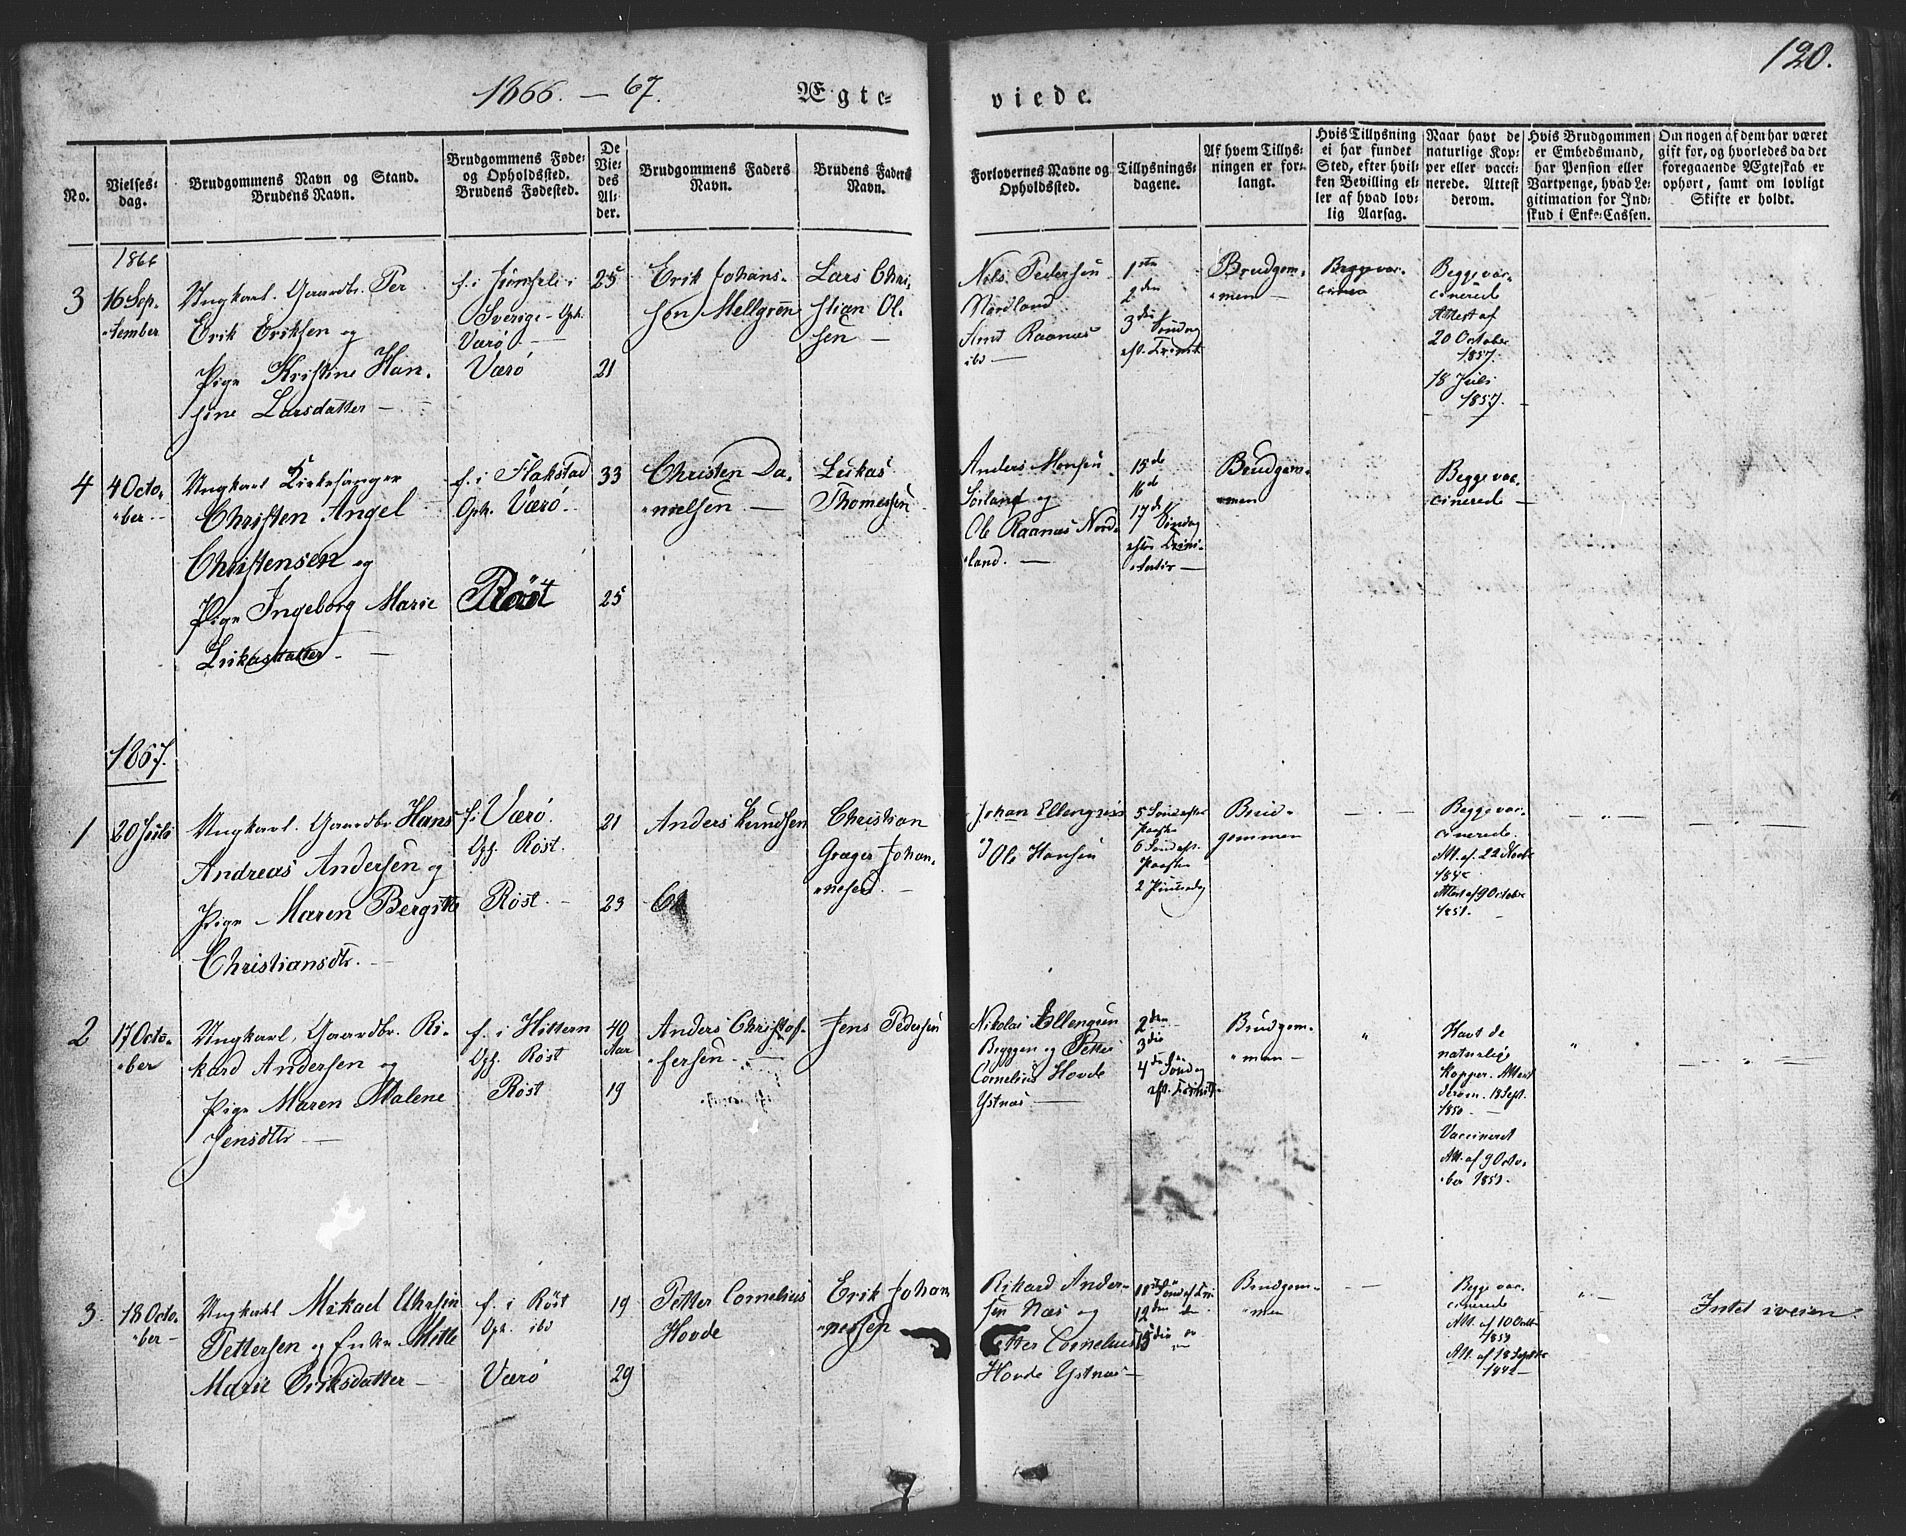 120.
1866. — 67.
Ægte-
viede.
No.
Vielses-
dag.
Brudgommens Navn og Stand.
Brudens Navn.
Brudgommens Føde-
og Opholdssted.
Brudens Fødested.
De
Vie-
des
Al-
der.
Brudgommens Faders
Navn.
Brudens Faders
Navn.
Forlovernes Navne og
Opholdssted.
Tillysnings-
dagene.
Af hvem Tillys-
ningen er for-
langt.
Hvis Tillysning
ei har fundet
Sted, efter hvil-
ken Bevilling el-
ler af hvad lov-
lig Aarsag.
Naar havt de
naturlige Kop-
per eller vacci-
nerede. Attest
derom.
Hvis Brudgommen
er Embedsmand,
har Pension eller
Vartpenge, hvad Le-
gitimation for Ind-
skud i Enke-Cassen.
Om nogen af dem har været
gift for, og hvorledes da det
foregaaende Ægteskab er
ophort, samt om lovligt
Skifte er holdt.
1866
3
16 Sep-
tember
Ungkarl. Gaardbr. Per
Erik Eriksen og
Pige Kristine Han-
sine Larsdatter —
f. i
Sverige - Oph.
Værö. —
Værö
25
21
Erik Johans-
sen Mellgren
Lars Chri-
stian Ol-
sen —
Nils Pedersen
Nordland
Arnt Raanas
ibd —
1ste
2den
3die Søndag
eft. Trinit
Brudgom-
men —
Begge vac-
cinerede
Attest af
20 October
1857.
18 Juli
1857.
4
4 Octo-
ber —
Ungkarl Kirkesanger
Christen Angel
Christensen og
Pige Ingeborg Marie
Lukasdatter —
f. i Flakstad
Oph. Værö.
Röst
33
25
Christen Da-
nielsen —
Lukas
Thomessen
Anders Monsen
Sørland og
Ole Raanas Nord-
land. —
15de
16de
17de Søndag
efter Trini-
tatis —
Brudgom-
men
Begge vac-
cinerede —
1867.
1
20 Juli
Ungkarl. Gaardbr. Hans
Andreas Andersen og
Pige Maren Bergitte
Christiansdtr. —
f. i Værö.
Oph. Röst.
Röst. —
21
23
Anders Knudsen
Christian
Græger Johan-
nesen. —
Johan Ellingsen
og Ole Hansen
5 Sønd efter
Paaske
6 Sønd eft.
Paaske
2 Pintsedag
Brud-
gommen
Begge vac-
cinerede.
Att. af 22
Attest af 9 October
1851.
2
17 Octo-
ber
Ungkarl, Gaardbr. Ri-
kard Andersen og
Pige Maren Malene
Jensdtr —
f. i Hittern
Oph. Röst
Röst
40
Aar
19
Anders Christof-
fersen. —
Jens Pedersen
Nikolai Ellingsen
og Petter
Cornelius Hovde
Ystnæs —
2den
3die
4de Søndag
eft. Trinit.
Brudgom-
men —
Havt de
naturlige
Kopper. Attest
derom. 18 Sept.
1850. —
Vaccineret
Att. af 9 Octo-
ber 1851.
3.
18 Octo-
ber —
Ungkarl Mikael
Pettersen og Enke Mette
Marie Eriksdatter —
f. i Röst
Oph. ibd
Værö
19
29
Petter Cornelius
Hovde
Erik Johan-
nessen
Rikard Ander-
sen Næs og
Petter Cornelius
Hovde Ystnæs —
Brudgom-
men
Begge vac-
cinerede
Att. af 10 Octbr
1859
Att. af 18 Septbr
Intet iveien.